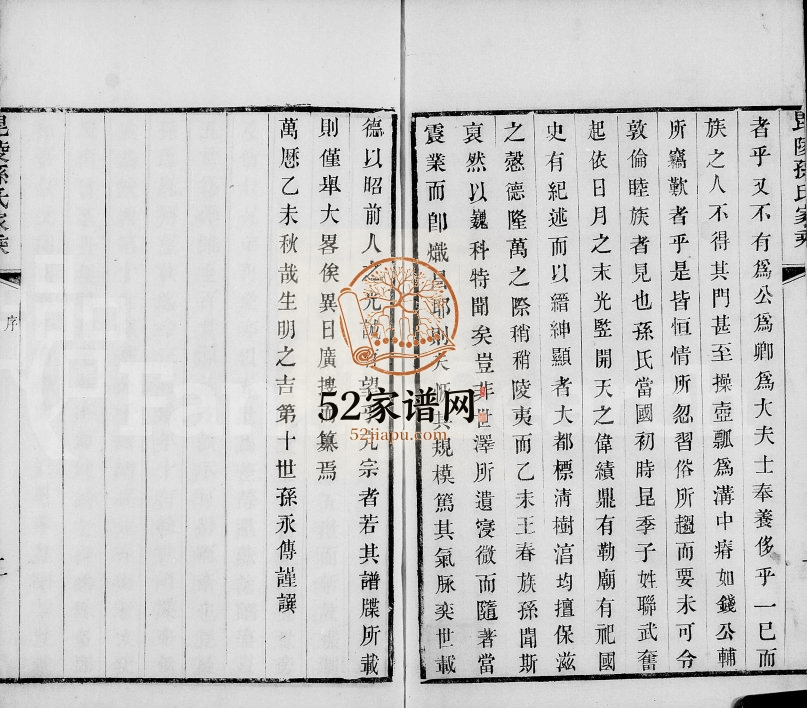 毘陵孫氏家乘
者乎又不有爲公爲卿爲大夫士奉養侈乎一已而
族之人不得其門甚至操壺瓢爲溝中瘠如錢公輔
所竊歎者乎是皆恒情所忽習俗所趨而要未可令
敦倫睦族者見也孫氏當國初時昆季子姓聯武奮
起依日月之末光監開天之偉績鼎有勒廟有祀國
史有紀述而以縉紳顯者大都標淸樹湻均擅保滋
之愨德隆萬之際稍稍陵夷而乙未王春族孫聞斯
裒然以巍科特聞矣豈非世澤所遺寖微而隨著當
震業而卽熾是耶則夫恢其規模篤其氣脉奕世載
德以昭前人之光 望 宗者若其譜牒所載
則僅舉大畧俟異日廣搜而纂焉
萬厯乙未秋哉生明之吉第十世孫永傳謹譔
毘陵孫氏家乘
序
52家谱网
52jiapu.com